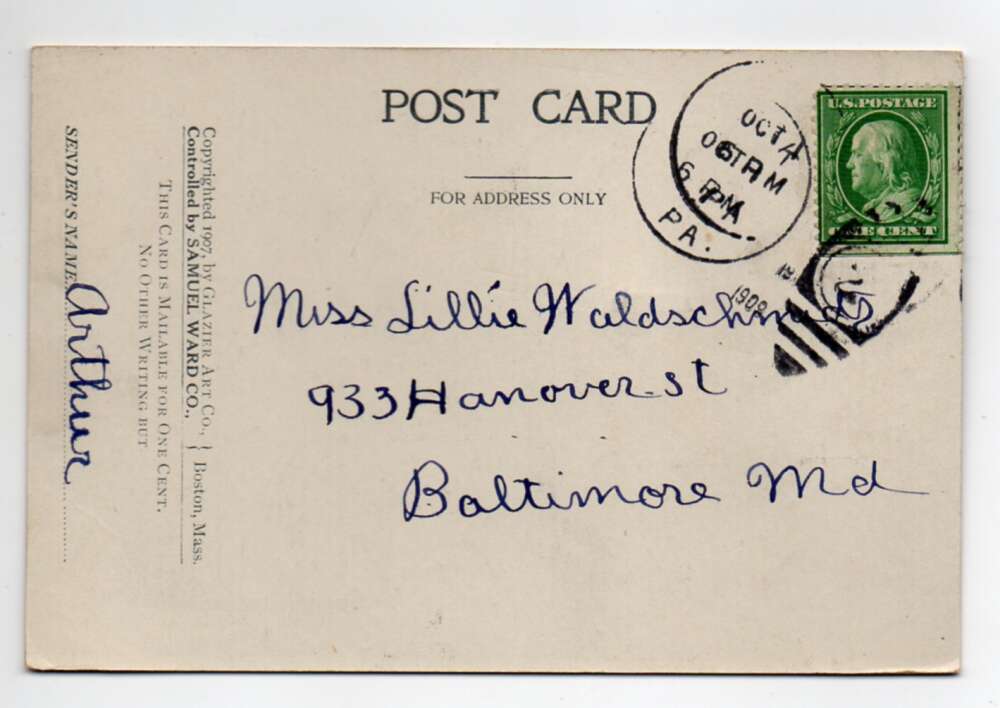 POST CARD
FOR ADDRESS ONLY
U.S. POSTAGE
ONE CENT
OCT 4
6 PM
PA.
1909
Miss Lillie
933 Hanover st
Baltimore Md
Copyrighted 1907, by GLAZIER ART CO., } Boston, Mass.
Controlled by SAMUEL WARD CO.,
THIS CARD IS MAILABLE FOR ONE CENT.
NO OTHER WRITING BUT
SENDER'S NAME. Arthur